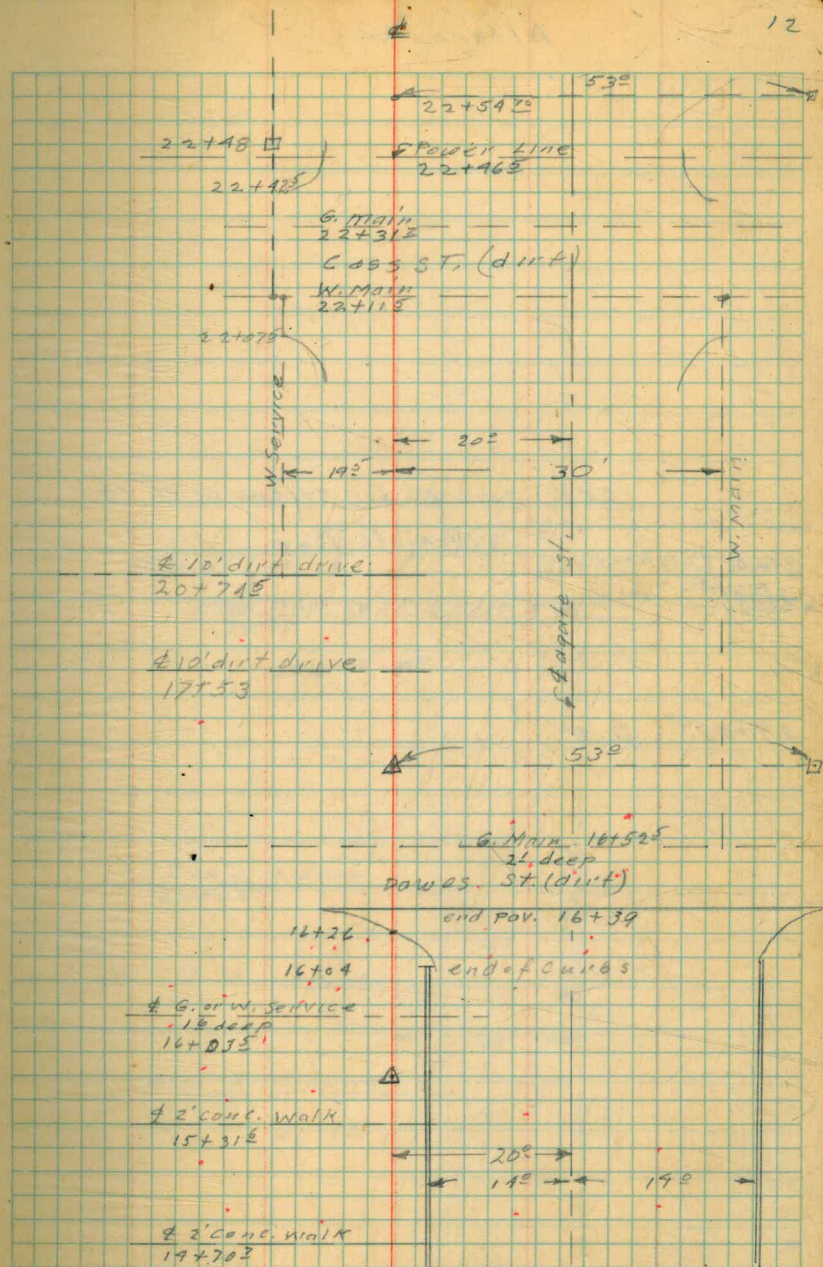 12
℄
53⁰
22+54⁷⁰
22+48
℄ Power Line
22+46⁵
22+42⁵
G. Main
22+31²
Cass ST. (dirt)
W. Main
22+11⁵
22+07⁵
20⁰
W. Service
19⁵
30'
W. Main
℄ 10' dirt drive
20+74⁵
℄ Agate St.
℄ 10' dirt drive
17+53
53⁰
G. Main 16+52⁵
2' deep
Dawes St. (dirt)
end pav. 16+39
16+26
16+04
end of curbs
℄ G. or W. Service
1⁶ deep
16+03⁵
℄ 2' conc. walk
15+31⁶
20⁰
14⁰
14⁰
℄ 2' conc. walk
14+70²